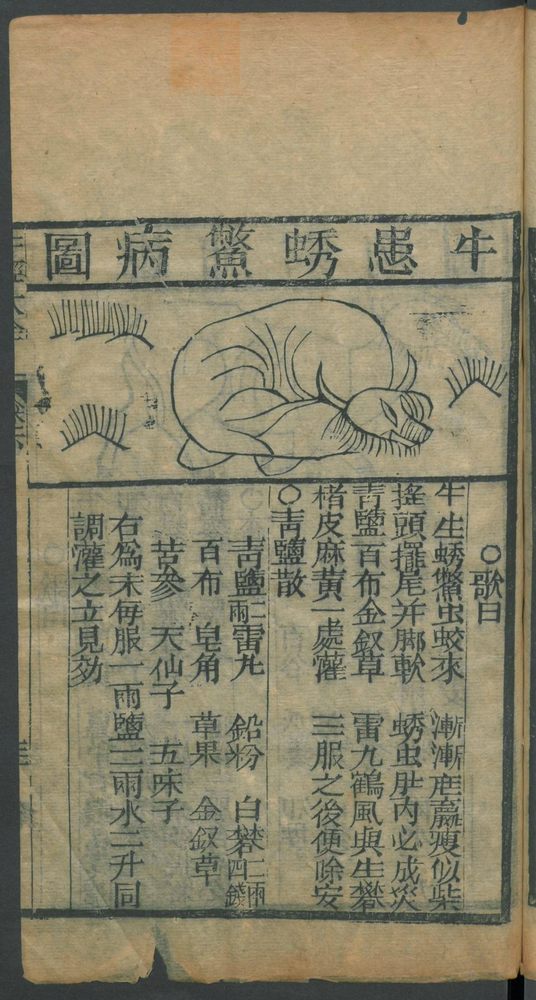 牛患蜏鱉病圖
○歌曰
牛生蜏鱉虫蛟來　漸漸疟羸瘦似柴
搖頭擺尾并脚軟　蜏虫肚内必成災
青鹽百布金釵草　雷九鶴風與生礬
楮皮麻黄一處灌　三服之後便除安
○青鹽散
青鹽二兩雷九　鉛粉　白礬二兩四錢
百布　皂角　草果　金釵草
苦參　天仙子　五味子
右為末每服一兩鹽二兩水二升同
調灌之立見効